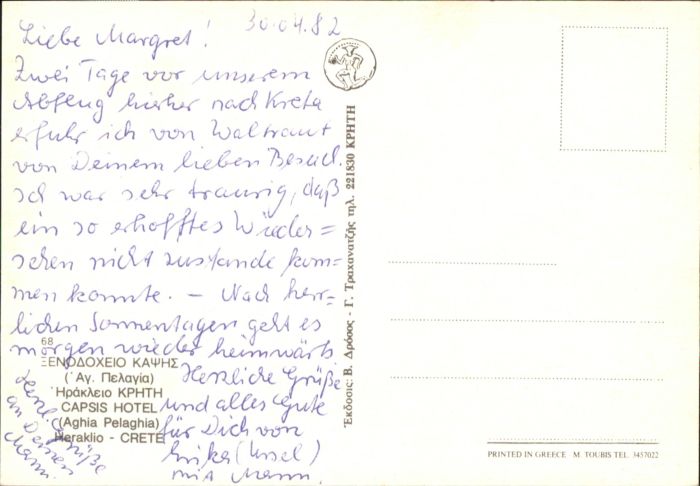 30.04.82
Liebe Margret!
Zwei Tage vor unserem
Abflug hierher nach Kreta
erfuhr ich von Waltraut
von Deinem lieben Besuch.
Ich war sehr traurig, daß
ein so erhofftes Wieder=
sehen nicht zustande kom=
men konnte. – Nach herr=
lichen Sonnentagen geht es
morgen wieder heimwärts.
Herzliche Grüße
und alles Gute
für Dich von
Erika (Insel)
mit Mann.
Herzl. Grüße
an Deinen
Mann.
68
ΞΕΝΟΔΟΧΕΙΟ ΚΑΨΗΣ
(Ἁγ. Πελαγία)
Ἡράκλειο ΚΡΗΤΗ
CAPSIS HOTEL
(Aghia Pelaghia)
Heraklio - CRETE
Ἐκδοσις: Β. Δρόσος - Γ. Τραχανατζής τηλ. 221830 ΚΡΗΤΗ
PRINTED IN GREECE M. TOUBIS TEL. 3457022